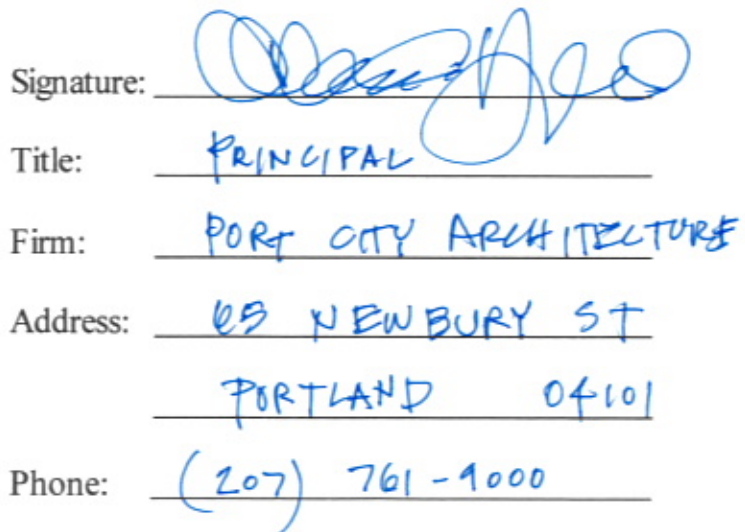 Signature:
Title: PRINCIPAL
Firm: PORT CITY ARCHITECTURE
Address: 65 NEWBURY ST
PORTLAND 04101
Phone: (207) 761-9000